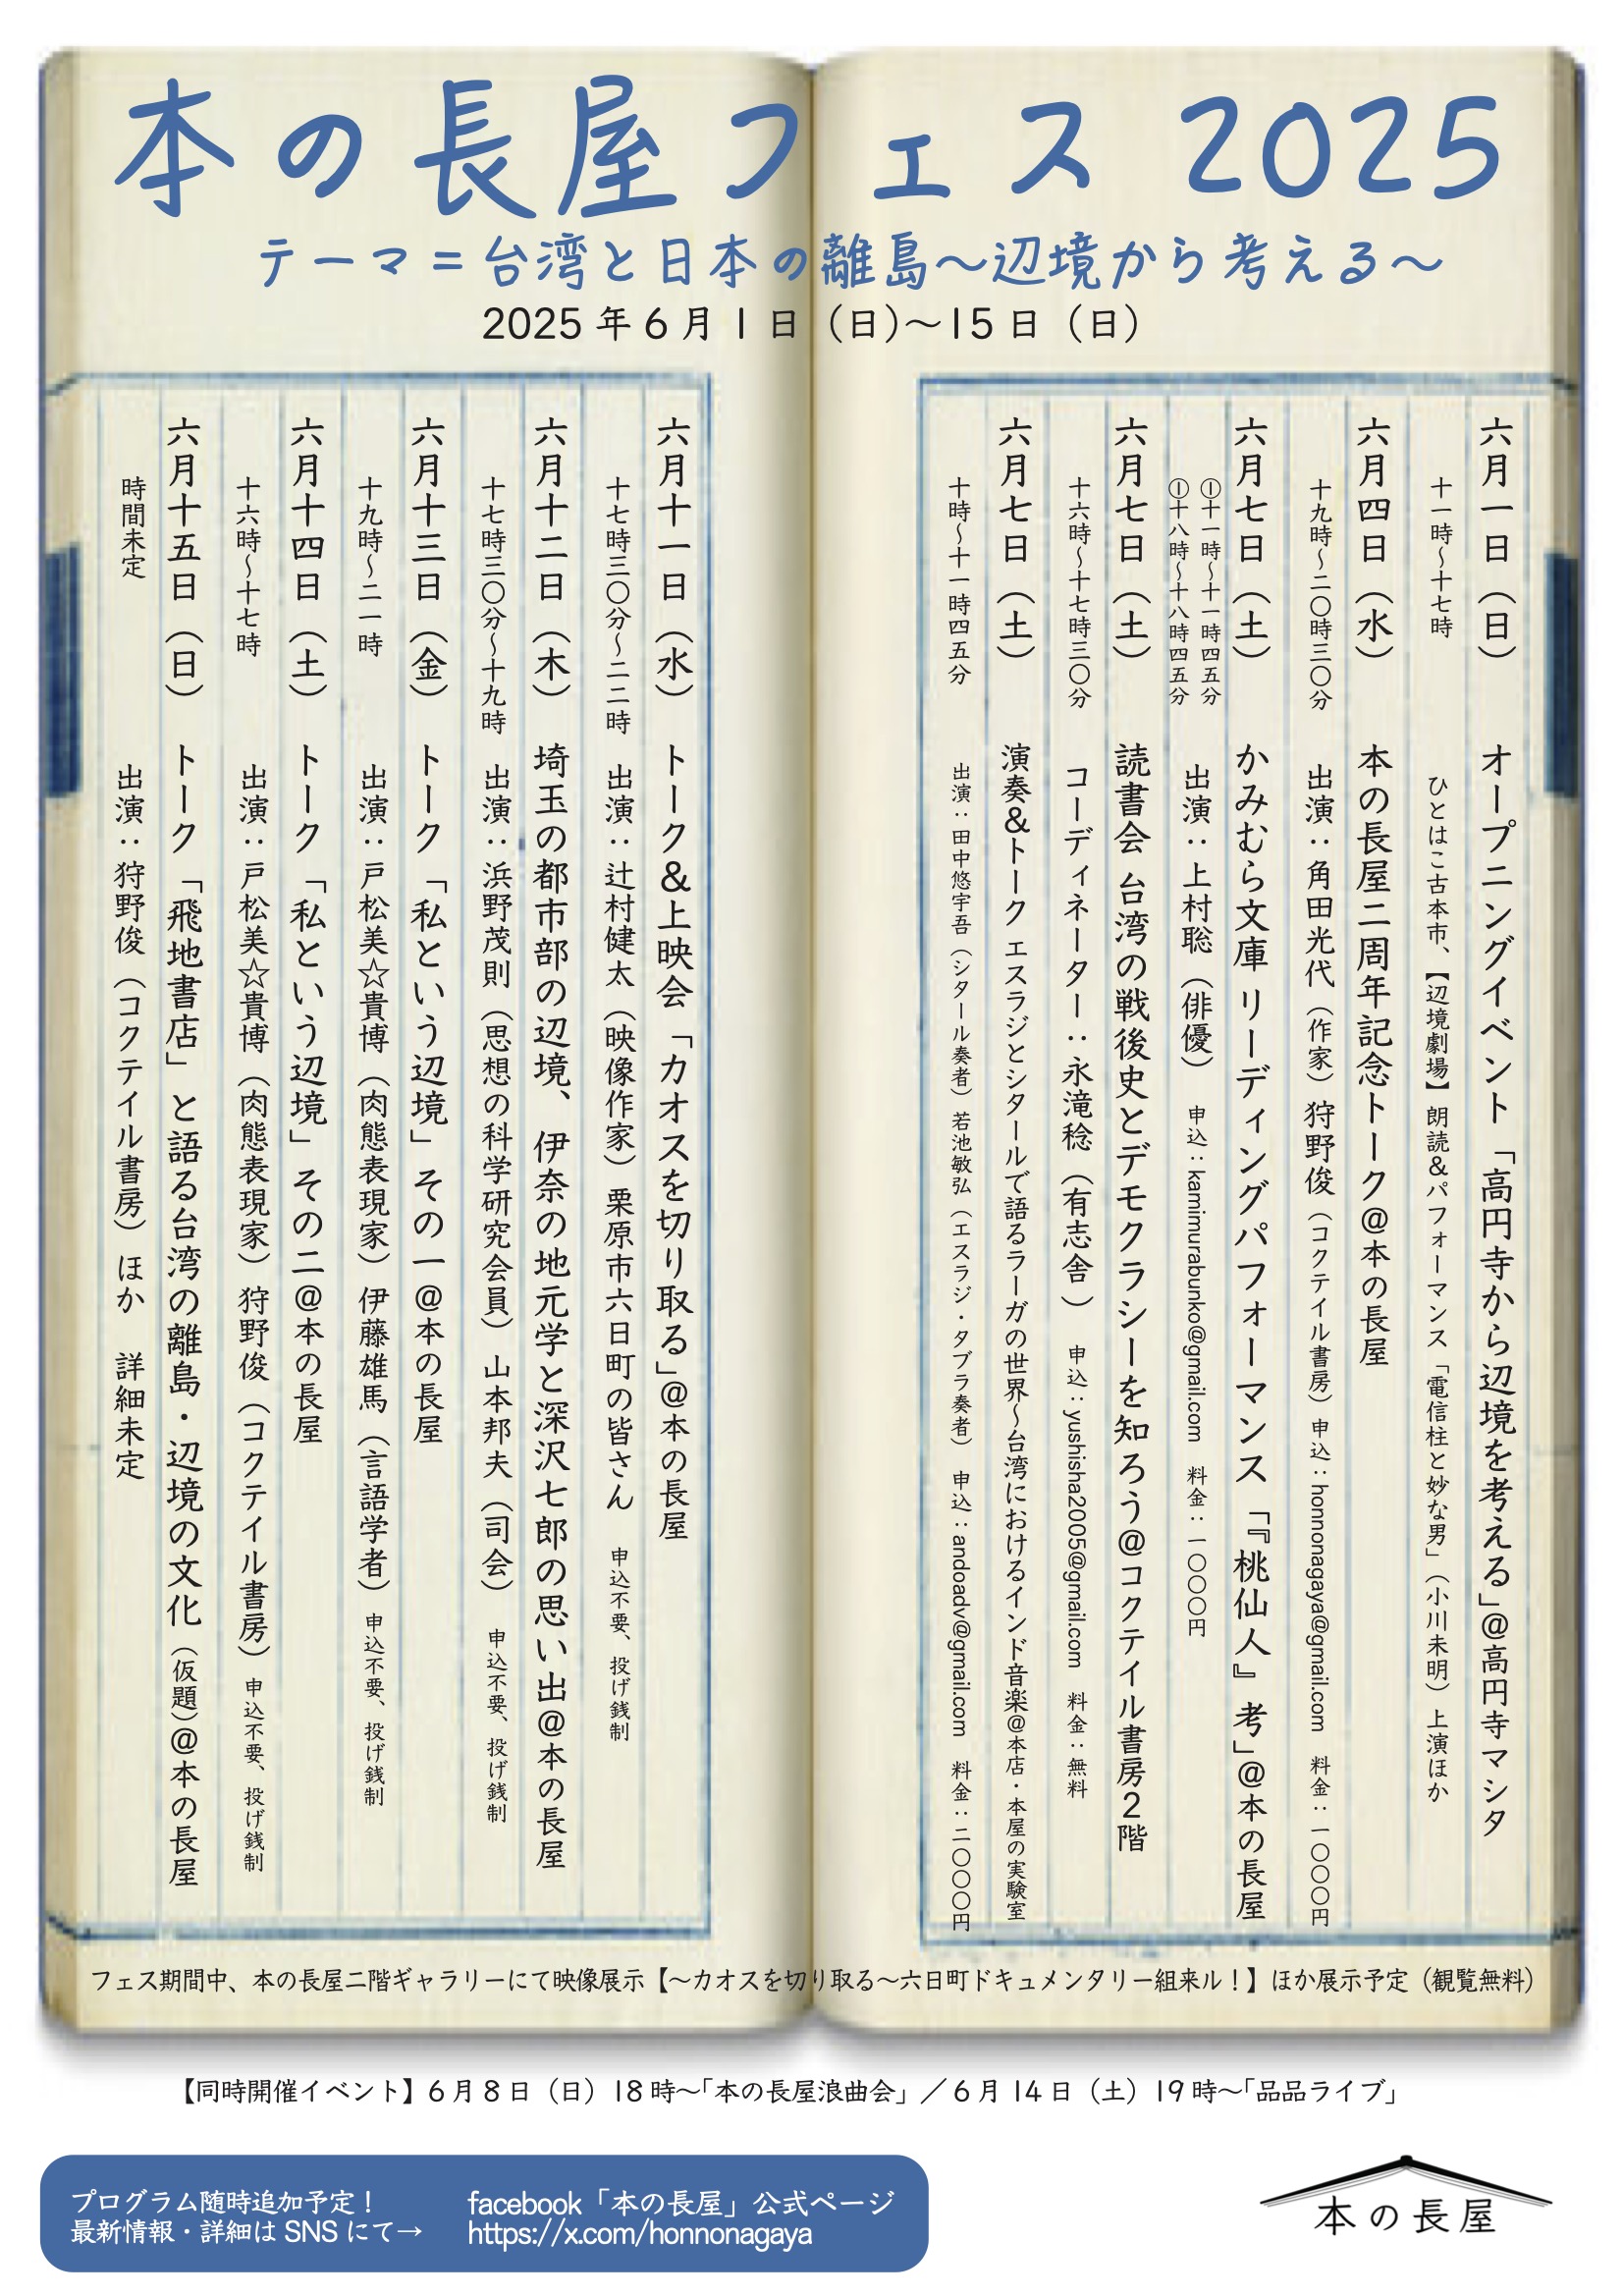 本の長屋フェス 2025
テーマ＝台湾と日本の離島～辺境から考える～
2025年6月1日（日）～15日（日）
六月一日（日）　オープニングイベント「高円寺から辺境を考える」@高円寺マシタ
十一時～十七時　ひとはこ古本市、【辺境劇場】朗読&パフォーマンス「電信柱と妙な男」（小川未明）上演ほか
六月四日（水）　本の長屋二周年記念トーク@本の長屋
十九時～二〇時三〇分　出演：角田光代（作家）狩野俊（コクテイル書房）申込：honnonagaya@gmail.com　料金：一〇〇〇円
六月七日（土）　かみむら文庫 リーディングパフォーマンス「『桃仙人』考」@本の長屋
①十一時～十一時四五分
①十八時～十八時四五分　出演：上村聡（俳優）　申込：kamimurabunko@gmail.com　料金：一〇〇〇円
六月七日（土）　読書会 台湾の戦後史とデモクラシーを知ろう@コクテイル書房2階
十六時～十七時三〇分　コーディネーター：永滝稔（有志舎）　申込：yushisha2005@gmail.com　料金：無料
六月七日（土）　演奏&トーク エスラジとシタールで語るラーガの世界～台湾におけるインド音楽@本店・本屋の実験室
十時～十一時四五分　出演：田中悠宇吾（シタール奏者）若池敏弘（エスラジ・タブラ奏者）　申込：andoadv@gmail.com　料金：二〇〇〇円
六月十一日（水）　トーク&上映会「カオスを切り取る」@本の長屋
十七時三〇分～二二時　出演：辻村健太（映像作家）栗原市六日町の皆さん　申込不要、投げ銭制
六月十二日（木）　埼玉の都市部の辺境、伊奈の地元学と深沢七郎の思い出@本の長屋
十七時三〇分～十九時　出演：浜野茂則（思想の科学研究会員）山本邦夫（司会）　申込不要、投げ銭制
六月十三日（金）　トーク「私という辺境」その一@本の長屋
十九時～二一時　出演：戸松美☆貴博（肉態表現家）伊藤雄馬（言語学者）　申込不要、投げ銭制
六月十四日（土）　トーク「私という辺境」その二@本の長屋
十六時～十七時　出演：戸松美☆貴博（肉態表現家）狩野俊（コクテイル書房）申込不要、投げ銭制
六月十五日（日）　トーク「飛地書店」と語る台湾の離島・辺境の文化（仮題）@本の長屋
時間未定　出演：狩野俊（コクテイル書房）ほか　詳細未定
フェス期間中、本の長屋二階ギャラリーにて映像展示【～カオスを切り取る～六日町ドキュメンタリー組来ル！】ほか展示予定（観覧無料）
【同時開催イベント】6月8日（日）18時～「本の長屋浪曲会」／6月14日（土）19時～「品品ライブ」
プログラム随時追加予定！
最新情報・詳細はSNSにて→
facebook「本の長屋」公式ページ
https://x.com/honnonagaya
本の長屋